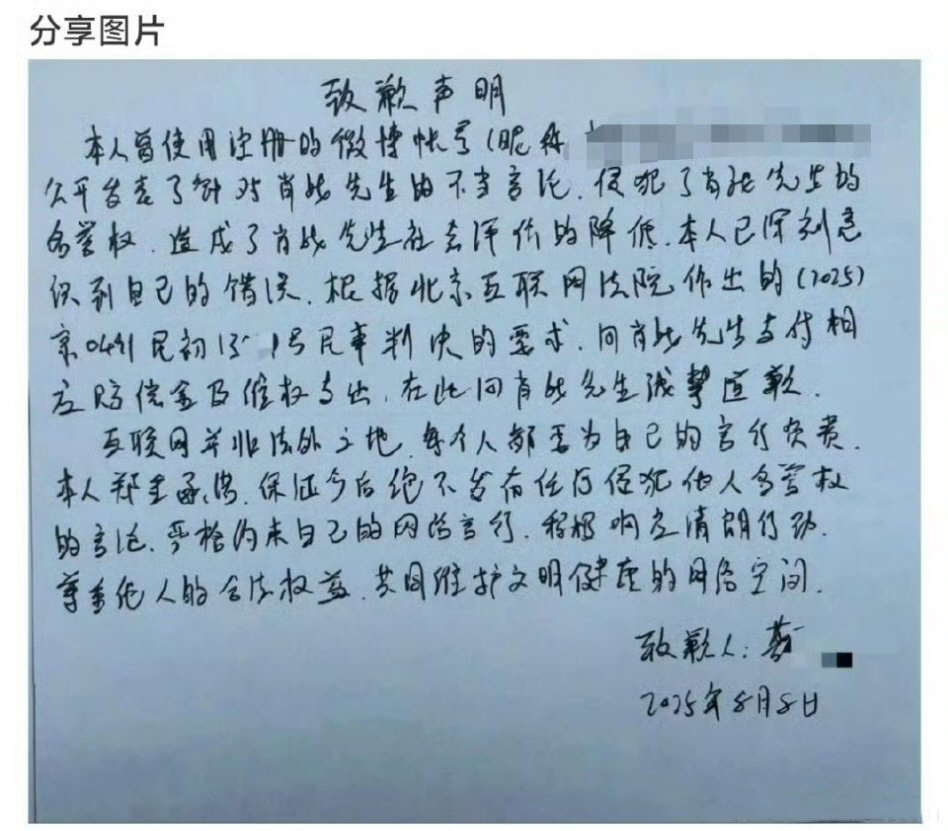 分享图片
致歉声明
本人曾使用注册的微博帐号(昵称
公开发表了针对肖战先生的不当言论,侵犯了肖战先生的
名誉权,造成了肖战先生社会评价的降低.本人已深刻意
识到自己的错误,根据北京互联网法院作出的(2025)
京0491民初15 1号民事判决的要求,向肖战先生支付相
应赔偿金及维权支出,在此向肖战先生诚挚道歉.
互联网并非法外之地,每个人都要为自己的言行负责.
本人郑重承诺,保证今后绝不发布任何侵犯他人名誉权
的言论,严格约束自己的网络言行,积极响应清朗行动,
尊重他人的合法权益,共同维护文明健康的网络空间.
致歉人:
2025年8月8日